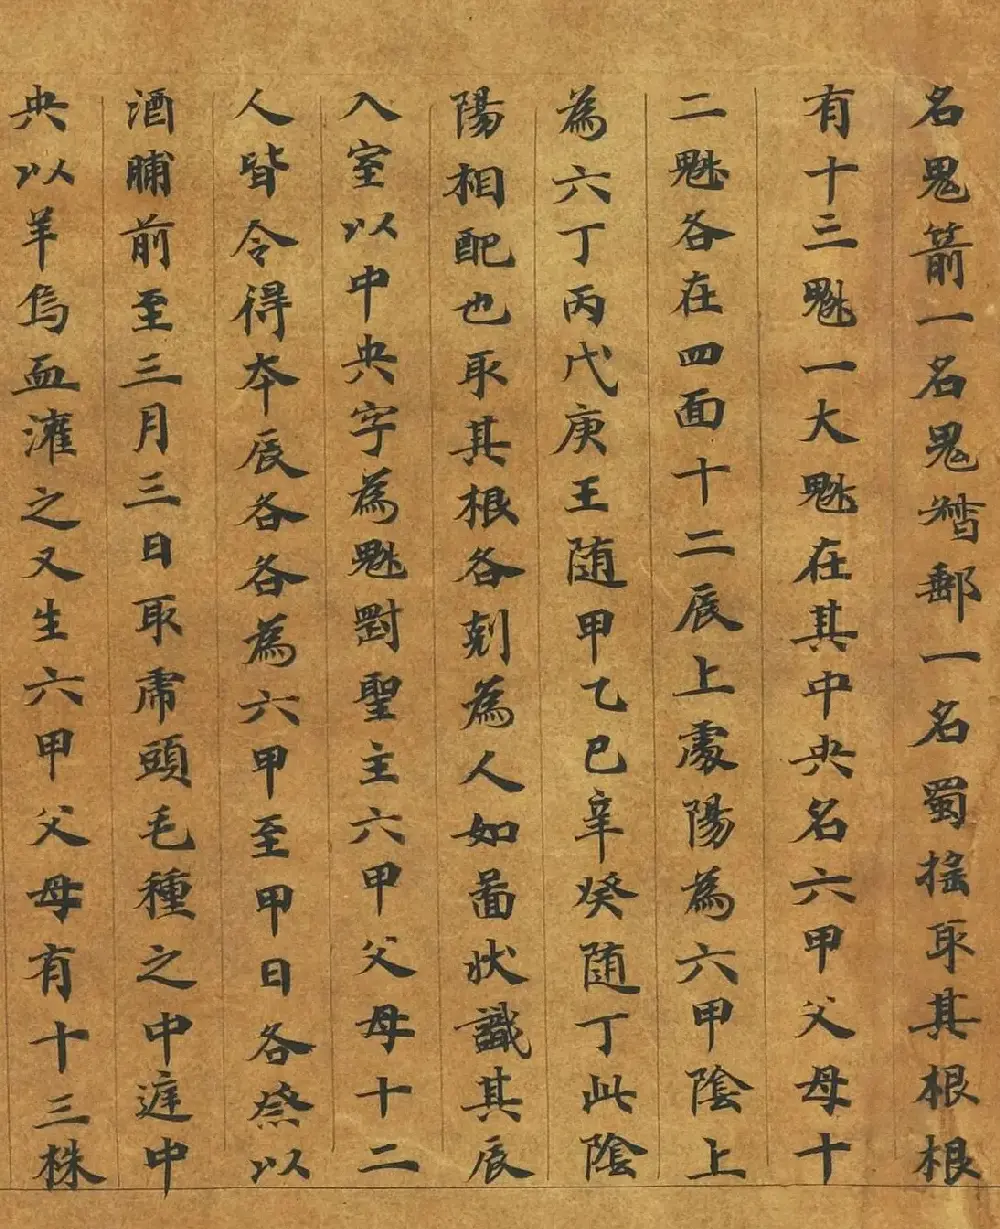 名鬼箭一名鬼督郵一名蜀搖取其根根
有十三魁一大魁在其中央名六甲父母十
二魁各在四面十二辰上處陽為六甲陰上
為六丁丙戊庚壬随甲乙巳辛癸随丁此陰
陽相配也取其根各剋為人如啚狀識其辰
入室以中央字為魁對聖主六甲父母十二
人皆令得本辰各各為六甲至甲日各祭以
酒脯前至三月三日取虎頭毛種之中庭中
央以羊烏血灌之又生六甲父母有十三株